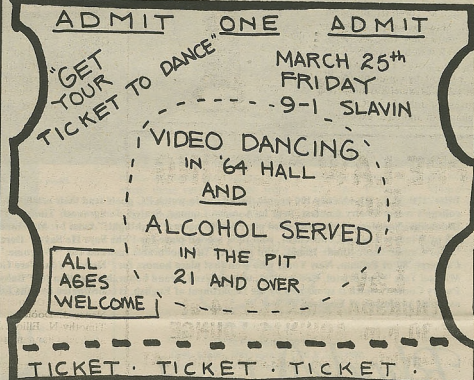 ADMIT ONE ADMIT
"GET
YOUR
TICKET TO DANCE"
MARCH 25th
FRIDAY
9-1 SLAVIN
VIDEO DANCING
IN '64 HALL
AND
ALCOHOL SERVED
IN THE PIT
21 AND OVER
ALL
AGES
WELCOME
TICKET · TICKET · TICKET ·